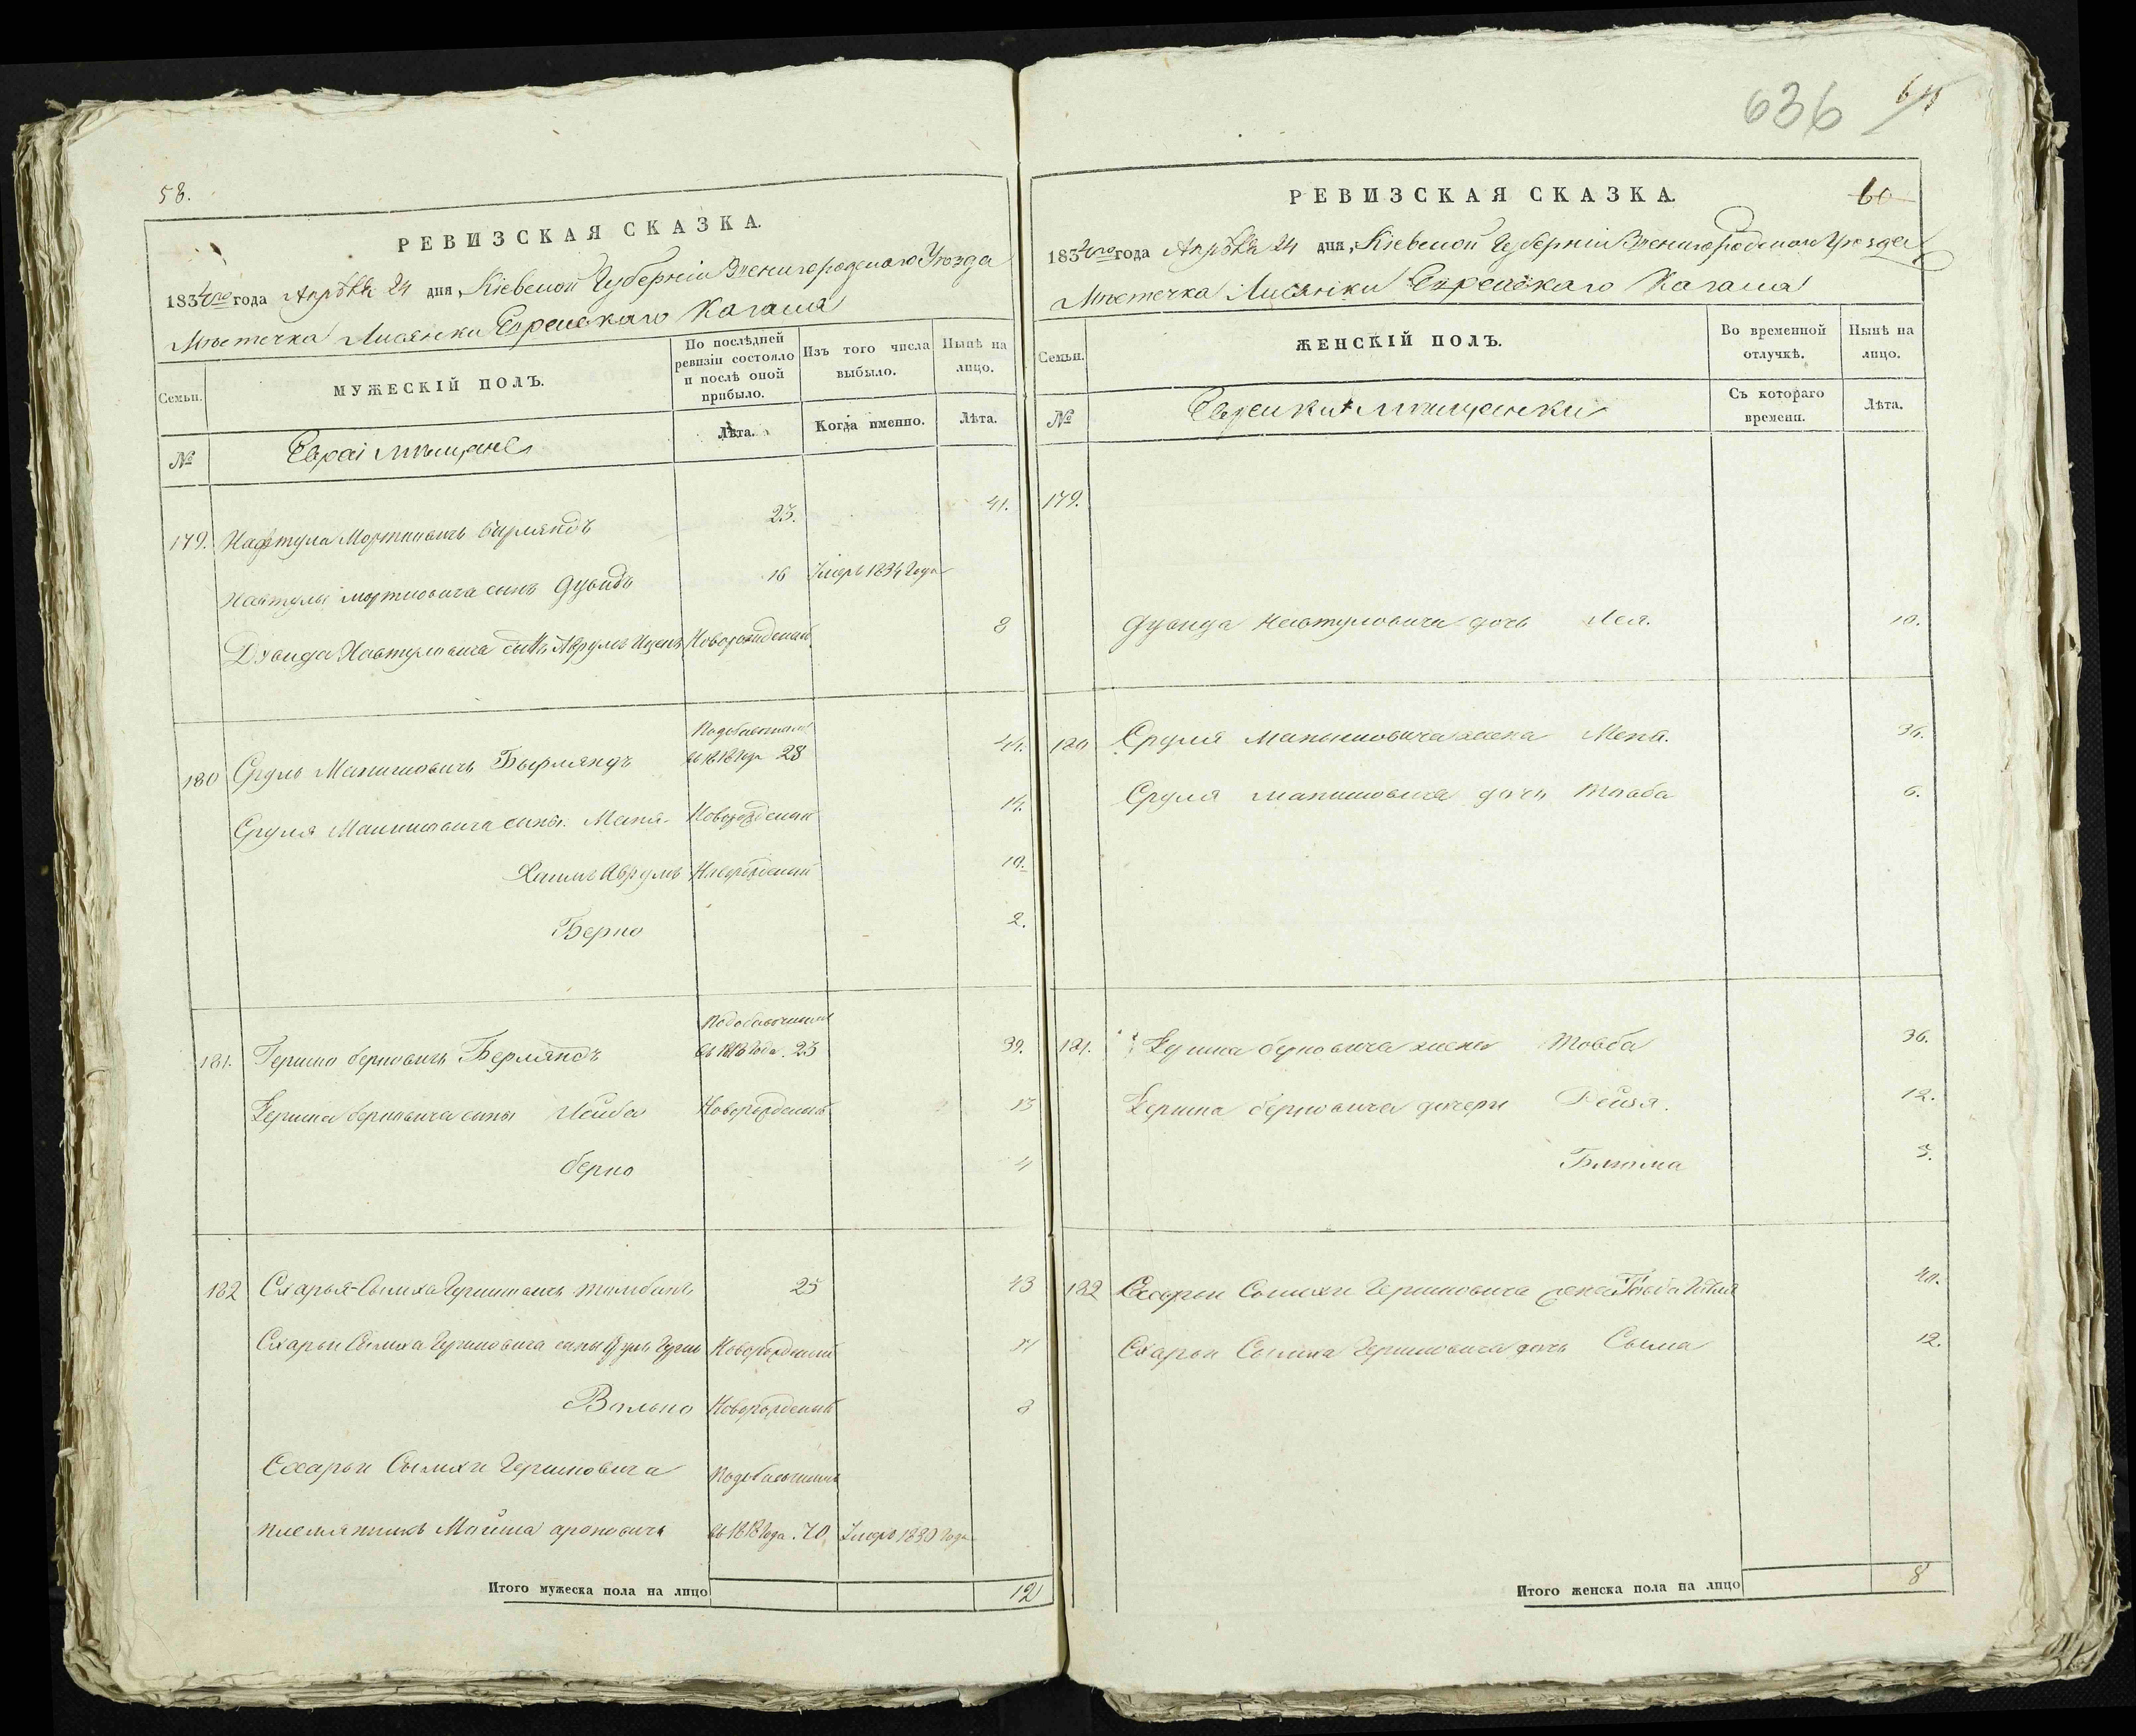 636
58.
РЕВИЗСКАЯ СКАЗКА.
1834го года Апрѣля 24 дня, Кіевской Губерніи Звенигородскаго Уѣзда
Мѣстечка Лисянки Еврейскаго Кагала
Семьи.
МУЖЕСКІЙ ПОЛЪ.
По послѣдней ревизіи состояло и послѣ оной прибыло.
Изъ того числа выбыло.
Нынѣ на лицо.
№
Евреи мѣщане
Лѣта.
Когда именно.
Лѣта.
179. Нафтула Мортковичъ Бырляндъ 23. 41.
Навтулы Мортковича сынъ Дувидъ 16 Умеръ 1834 Года
Дувида Навтуловича сынъ Аврумъ Ицекъ Новорожденный 8
180 Сруль Манишовичъ Бырляндъ въ 1818 году 28 44.
Сруля Манишовича сыны. Маня. Новорожденный 14.
Хаимъ Аврумъ Новорожденный 10.
Берко 2.
181. Гершко Берковичъ Берляндъ въ 1818 Года. 23 39.
Гершка Берковича сыны Лейба Новорожденный 13
Берко 4
182 Схарья-Сымха Гершковичъ 25 43
Схарьи Сымха Гершковича сыны Новорожденный
Волько Новорожденный 8
Схарьи Сымхи Гершковича
племянникъ Мойша Ароновичъ въ 1818 Года. 70 Умеръ 1830 Года
Итого мужеска пола на лицо 12
РЕВИЗСКАЯ СКАЗКА. 60
1834го года Апрѣля 24 дня, Кіевской Губерніи Звенигородскаго Уѣзда
Мѣстечка Лисянки Еврейскаго Кагала
Семьи.
ЖЕНСКІЙ ПОЛЪ.
Во временной отлучкѣ.
Нынѣ на лицо.
№
Еврейки мѣщанки
Съ котораго времени.
Лѣта.
179.
Дувида Навтуловича дочь Лея. 10.
180 Сруля Манишовича жена 36.
Сруля Манишовича дочь Товба 6.
181. Гершка Берковича жена Товба 36.
Гершка Берковича дочери Рейзя. 12.
Блюма 3.
182 Схарьи Сымхи Гершковича жена 40.
Схарьи Сымха Гершковича дочь Сыма 12.
Итого женска пола на лицо 8